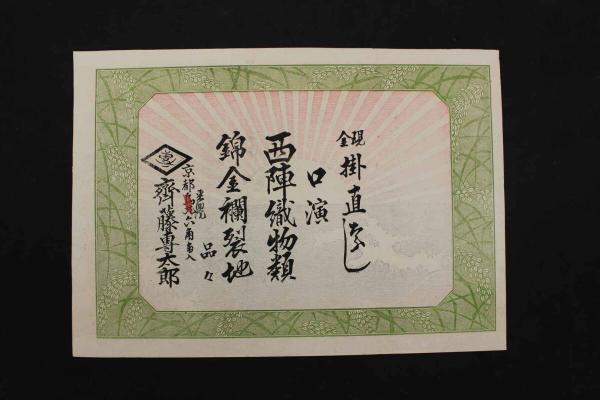 現金
掛直なし
口演
西陣織物類
錦金襴裂地
品々
京都
六角南入
齊藤專太郎